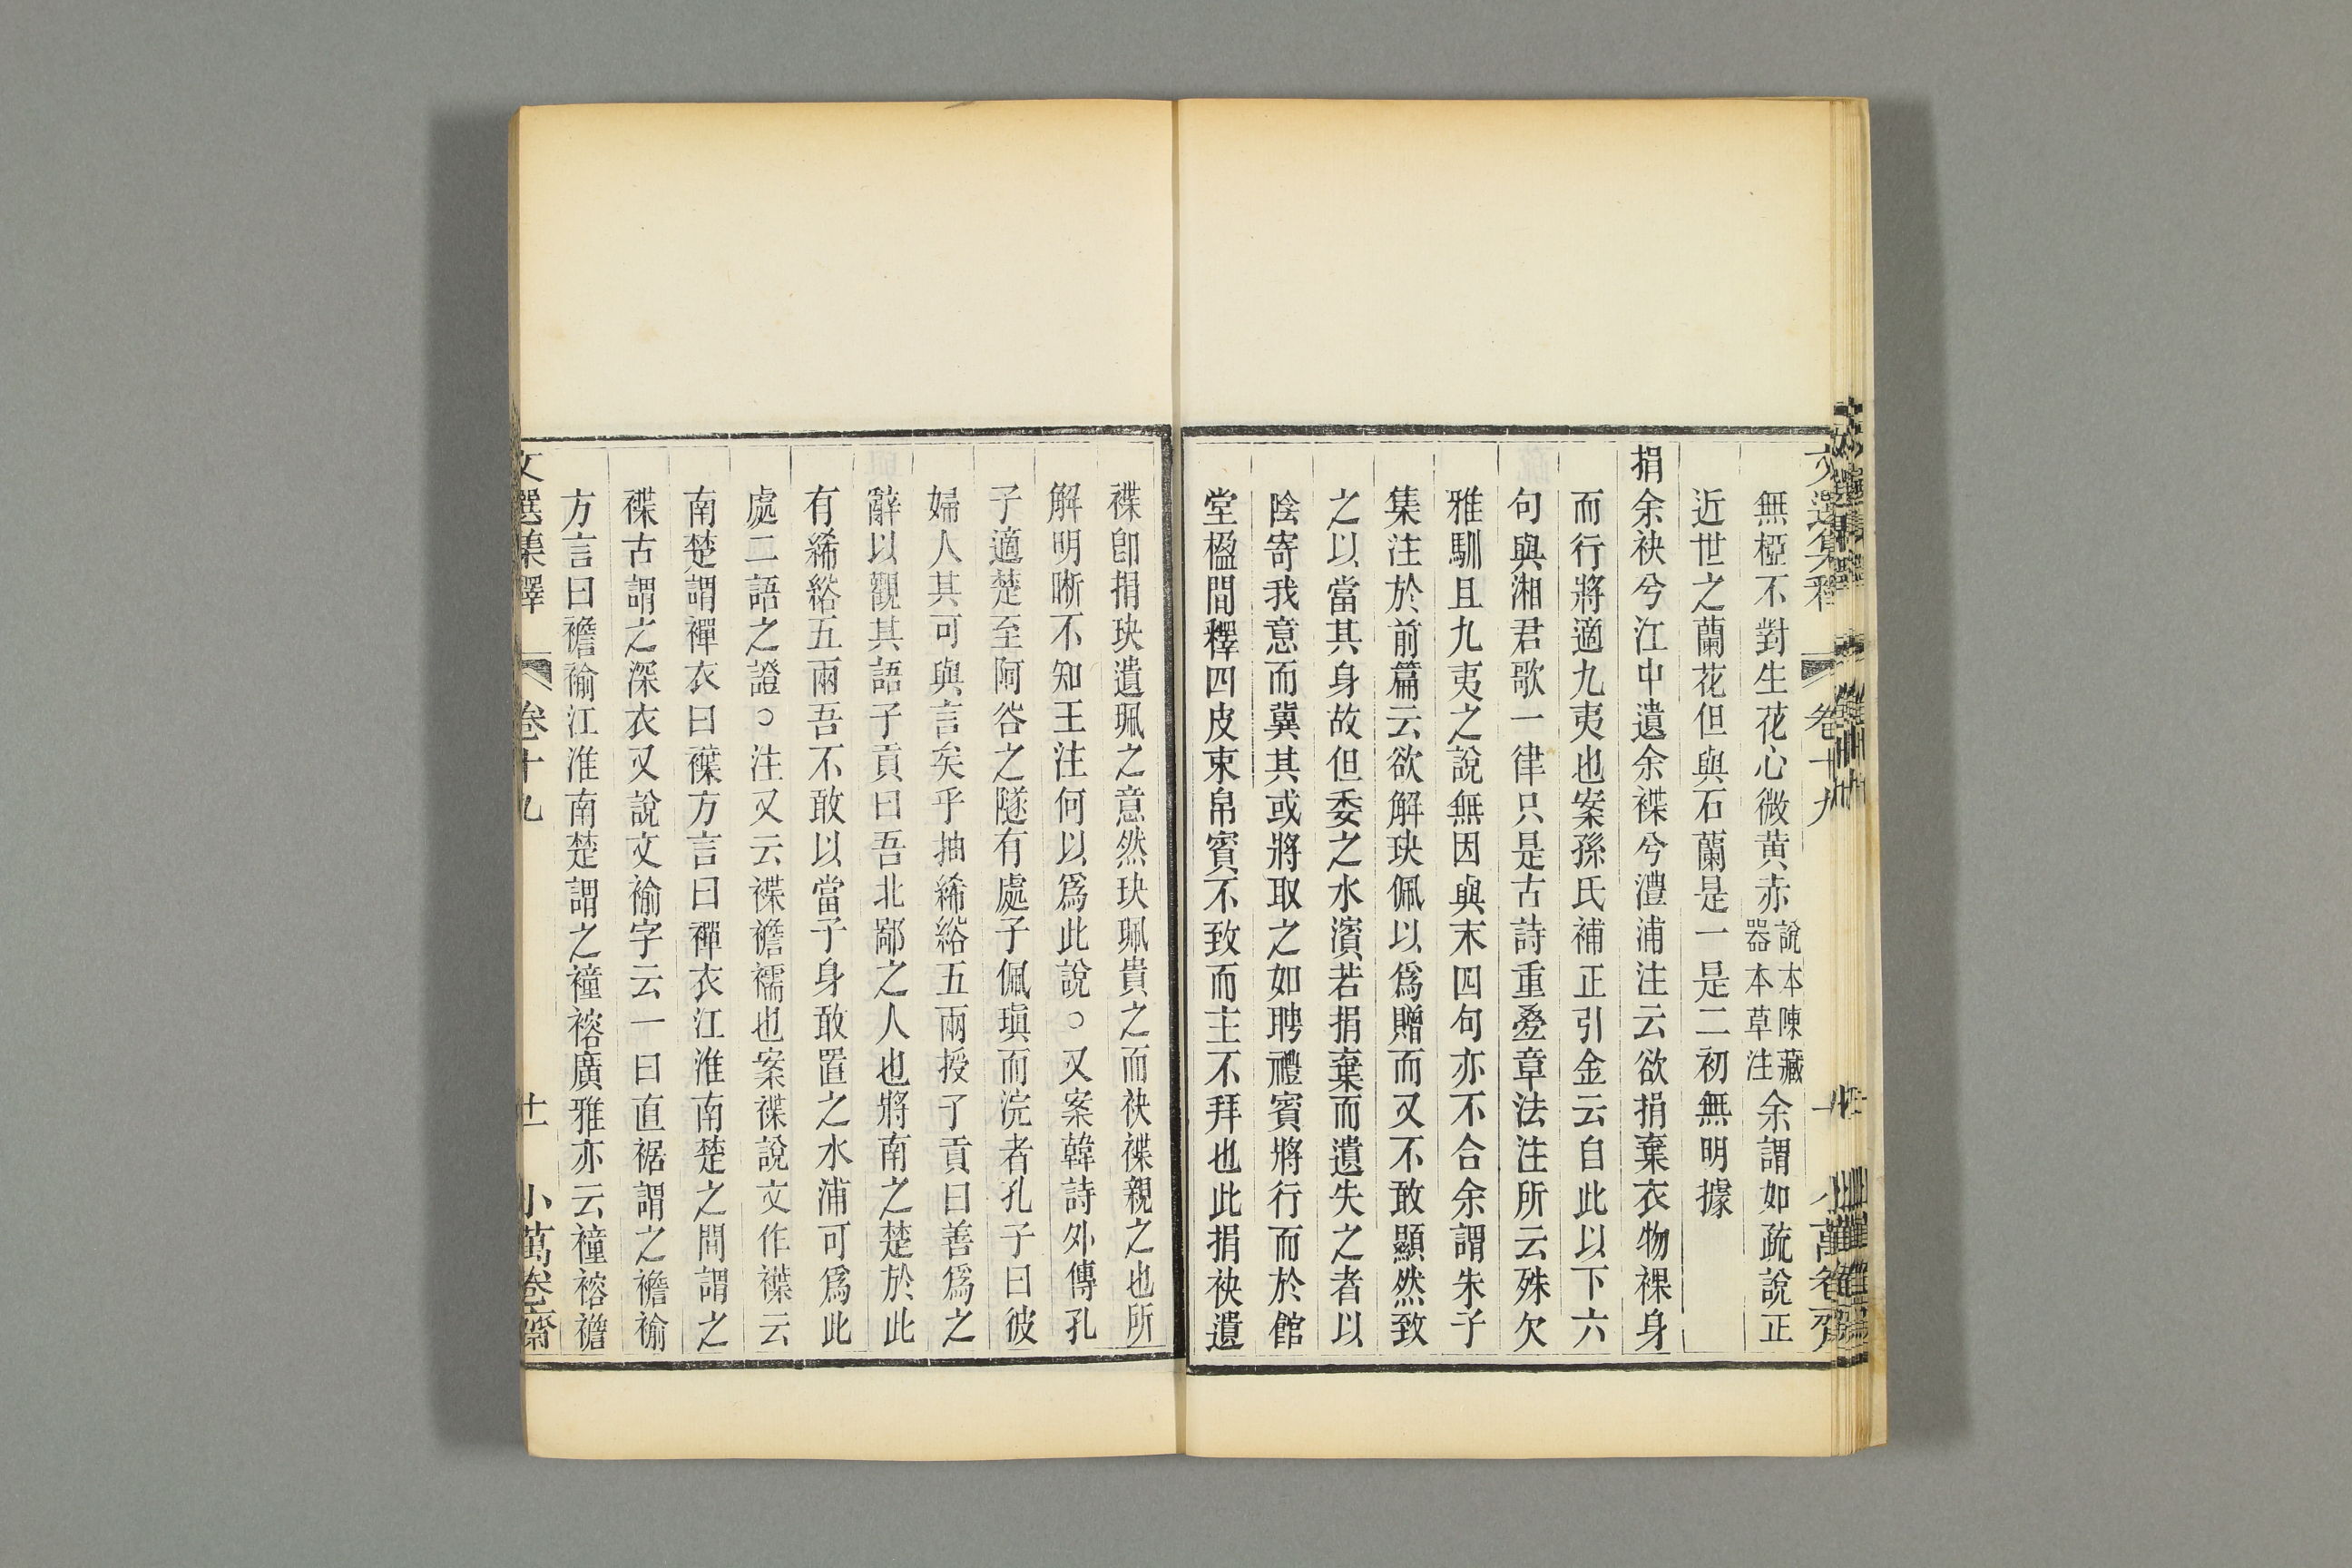 無椏不對生花心微黄赤說本陳藏器本草注余謂如疏說正
近世之蘭花但與石蘭是一是二初無明據
捐余袂兮江中遺余褋兮澧浦注云欲捐棄衣物裸身
而行將適九夷也案孫氏補正引金云自此以下六
句與湘君歌一律只是古詩重疊章法注所云殊欠
雅馴且九夷之說無因與末四句亦不合余謂朱子
集注於前篇云欲解玦佩以爲贈而又不敢顯然致
之以當其身故但委之水濱若捐棄而遺失之者以
陰寄我意而冀其或將取之如聘禮賓將行而於館
堂楹間釋四皮束帛賓不致而主不拜也此捐袂遺
褋卽捐玦遺珮之意然玦珮貴之而袂褋親之也所
解明晰不知王注何以爲此說○又案韓詩外傳孔
子適楚至阿谷之隧有處子佩瑱而浣者孔子曰彼
婦人其可與言矣乎抽絺綌五兩授子貢曰善爲之
辭以觀其語子貢曰吾北鄙之人也將南之楚於此
有絺綌五兩吾不敢以當子身敢置之水浦可爲此
處二語之證○注又云褋襜襦也案褋說文作𧝠云
南楚謂襌衣曰𧝠方言曰襌衣江淮南楚之間謂之
褋古謂之深衣又說文褕字云一曰直裾謂之襜褕
方言曰襜褕江淮南楚謂之䙱褣廣雅亦云䙱褣襜
文選集釋 卷十九 十一 小萬卷齋